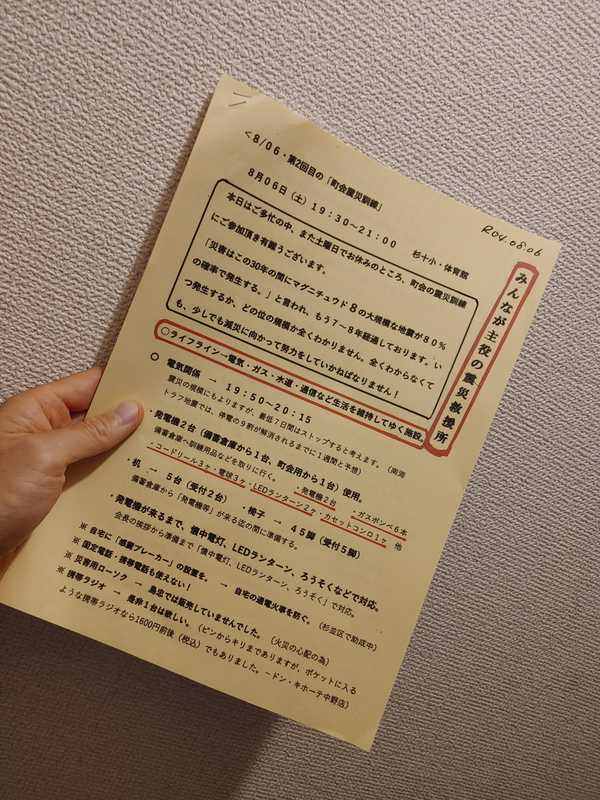 R04.08.06
<8/06・第2回目の「町会震災訓練」
8月06日(土)19:30~21:00 杉十小・体育館
本日はご多忙の中、また土曜日でお休みのところ、町会の震災訓練
にご参加頂き有難うございます。
「災害はこの30年の間にマグニチュウド8の大規模な地震が80%
の確率で発生する。」と言われ、もう7~8年経過しております。い
つ発生するか、どの位の規模か全くわかりません。全くわからなくて
も、少しでも減災に向かって努力をしていかねばなりません!
みんなが主役の震災救援所
○ライフライン→電気・ガス・水道・通信など生活を維持してゆく施設。
○ 電気関係 → 19:50~20:15
震災の規模にもよりますが、最低7日間はストップすると考えます。(南海
トラフ地震では、停電の9割が解消されるまでに1週間と予想)
・発電機2台(備蓄倉庫から1台、町会用から1台)使用。
備蓄倉庫へ訓練用品などを取りに行く。 ・発電機2台 ・ガスボンベ6本
・コードリール3ヶ・電球3ヶ・LEDランタン2ヶ・カセットコンロ1ヶ 他
・机 → 5台(受付2台) ・椅子 → 45脚(受付5脚)
備蓄倉庫から「発電機等」が来る迄の間に準備する。
・発電機が来るまで、懐中電灯、LEDランタン、ろうそくなどで対応。
会長の挨拶から準備まで「懐中電灯、LEDランタン、ろうそく」で対応。
※ 自宅に「感震ブレーカー」の設置を。 → 自宅の通電火事を防ぐ。(杉並区で助成中)
※ 固定電話・携帯電話も使えない!
※ 災害用ローソク → 島忠では販売していませんでした。(火災の心配の為)
※ 携帯ラジオ → 是非1台は欲しい。(ピンからキリまでありますが、ポケットに入る
ような携帯ラジオなら1600円前後(税込)でもありました。-ドン・キホーテ中野店)